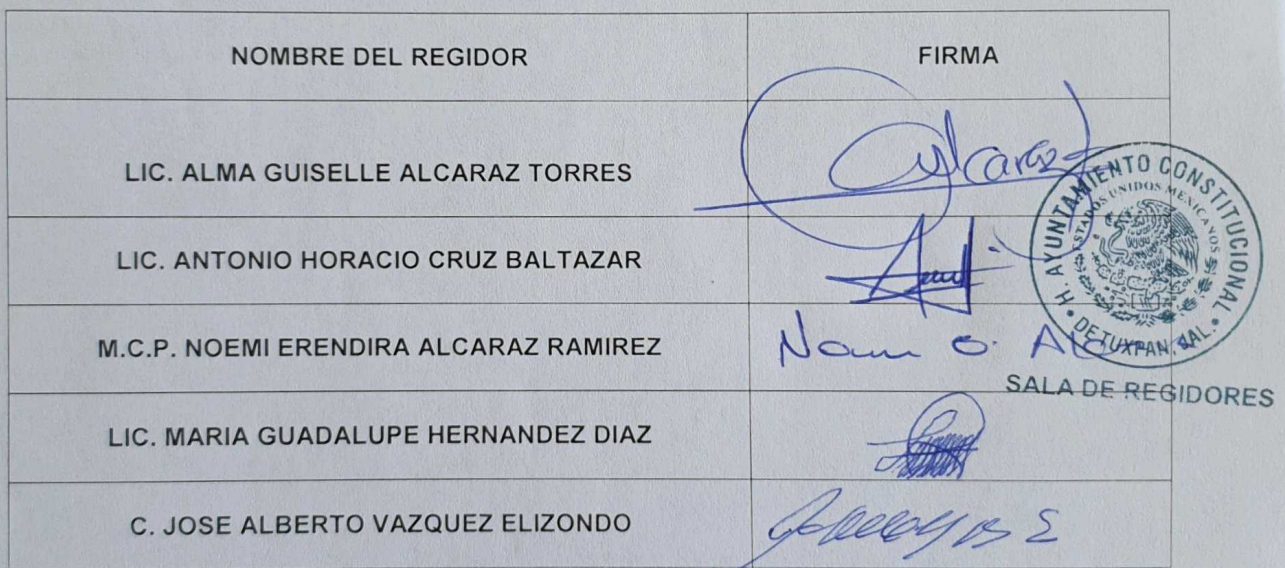 NOMBRE DEL REGIDOR FIRMA
LIC. ALMA GUISELLE ALCARAZ TORRES Alcaraz
LIC. ANTONIO HORACIO CRUZ BALTAZAR
M.C.P. NOEMI ERENDIRA ALCARAZ RAMIREZ
LIC. MARIA GUADALUPE HERNANDEZ DIAZ
C. JOSE ALBERTO VAZQUEZ ELIZONDO
H. AYUNTAMIENTO CONSTITUCIONAL
ESTADOS UNIDOS MEXICANOS
DE TUXPAN, JAL.
SALA DE REGIDORES